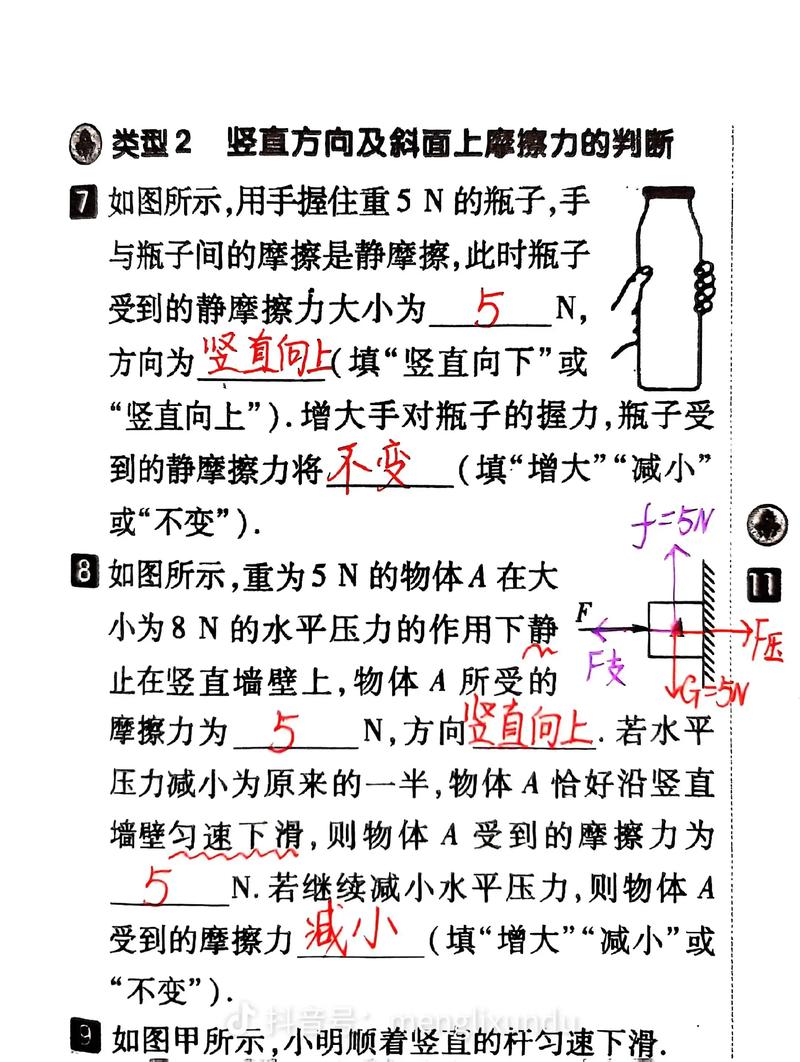 类型2 竖直方向及斜面上摩擦力的判断
7 如图所示,用手握住重5 N的瓶子,手
与瓶子间的摩擦是静摩擦,此时瓶子
受到的静摩擦力大小为 5 N,
方向为 竖直向上 (填“竖直向下”或
“竖直向上”).增大手对瓶子的握力,瓶子受
到的静摩擦力将 不变 (填“增大”“减小”
或“不变”).
f=5N
8 如图所示,重为5 N的物体A在大
11
小为8 N的水平压力的作用下静
F
A
F压
F支
止在竖直墙壁上,物体A所受的
G=5N
摩擦力为 5 N,方向 竖直向上 .若水平
压力减小为原来的一半,物体A恰好沿竖直
墙壁匀速下滑,则物体A受到的摩擦力为
5 N.若继续减小水平压力,则物体A
受到的摩擦力 减小 (填“增大”“减小”或
“不变”).
抖音号: menglixundu
9 如图甲所示,小明顺着竖直的杆匀速下滑.